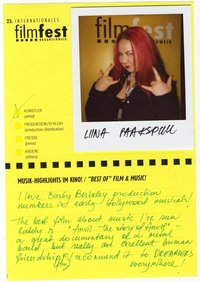 23. INTERNATIONALES
filmfest
BRAUNSCHWEIG
filmfest
KÜNSTLER
(artist)
PRODUKTION/VERLEIH
(production/distribution)
PRESSE
(press)
ANDERE
(others)
LIINA PAAKSPUU
MUSIK-HIGHLIGHTS IM KINO! / "BEST OF" FILM & MUSIC!
I love Busby Berkeley production
numbers in early Hollywood musicals!
The best film about music I've seen
lately is "Anvil - the story of Anvil" -
a great documentary of a metal
band, but really an excellent human
friendship film! I recommend it to DREAMERS
everywhere!